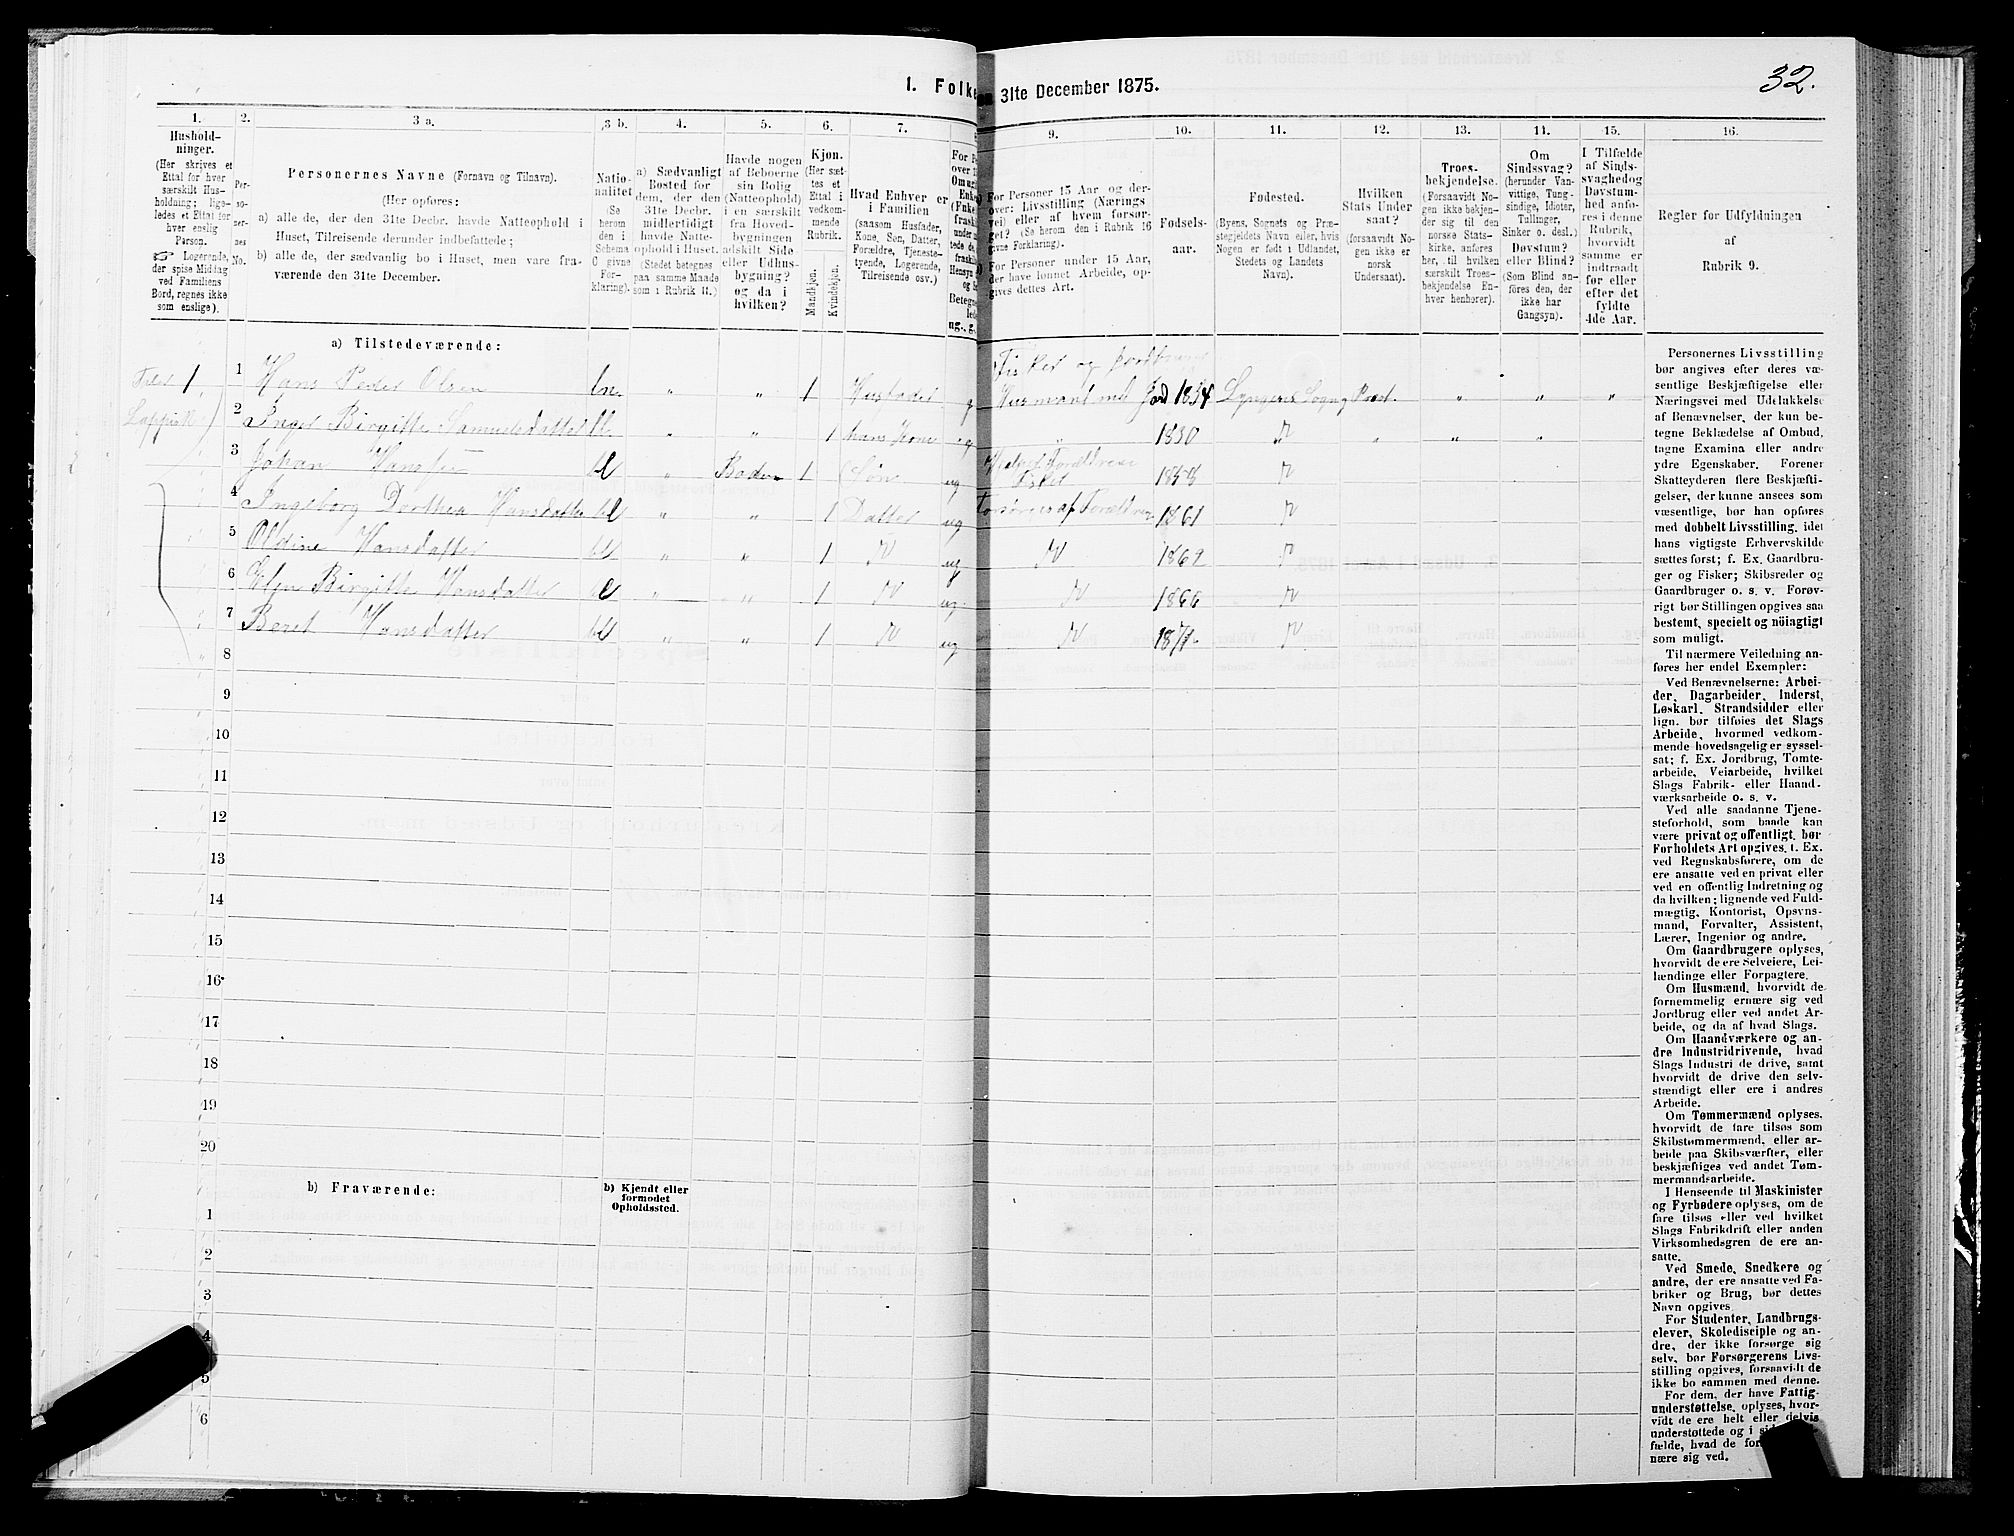 1. Folke
en 31te December 1875.
32.
1.
Hushold-
ninger.
(Her skrives et
Ettal for hver
særskilt Hus-
holdning; lige-
ledes et Ettal for
hver enslig
Person.
☞ Logerende,
der spise Middag
ved Familiens
Bord, regnes ikke
som enslige).
2.
Per-
so-
ner-
nes
No.
3 a.
Personernes Navne (Fornavn og Tilnavn).
(Her opføres:
a) alle de, der den 31te Decbr. havde Natteophold i
Huset, Tilreisende derunder indbefattede;
b) alle de, der sædvanlig bo i Huset, men vare fra-
værende den 31te December.
3 b.
Natio-
nalitet
(Se
herom
den i
Schema
C givne
For-
klaring).
4.
a) Sædvanligt
Bosted for
dem, der den
31te Decbr.
midlertidigt
havde Natte-
ophold i Huset.
(Stedet betegnes
paa samme Maade
som i Rubrik 11.)
5.
Havde nogen
af Beboerne
sin Bolig
(Natteophold)
i en særskilt
fra Hoved-
bygningen
adskilt Side
eller Udhus-
bygning?
og da i
hvilken?
6.
Kjøn.
(Her sæt-
tes et
Ettal i
vedkom-
mende
Rubrik.
Mandkjøn.
Kvindekjøn.
7.
Hvad Enhver er
i Familien
(saasom Husfader,
Kone, Søn, Datter,
Forældre, Tjeneste-
tyende, Logerende,
Tilreisende osv.)
9.
For Personer 15 Aar og der-
over: Livsstilling (Nærings
vei) eller af hvem forsør-
get? (Se herom den i Rubrik 16
givne Forklaring).
For Personer under 15 Aar,
der have lønnet Arbeide, op-
gives dettes Art.
10.
Fødsels-
aar.
11.
Fødested.
(Byens, Sognets og Præ-
stegjeldets Navn eller, hvis
Nogen er født i Udlandet,
Stedets og Landets
Navn).
12.
Hvilken
Stats Under
saat?
(forsaavidt No-
gen ikke er
norsk
Undersaat).
13.
Troes-
bekjendelse.
(Forsaavidt No-
gen ikke bekjen-
der sig til den
norske Stats-
kirke, anføres
her, til hvilken
særskilt Troes-
bekjendelse En-
hver henhører).
14.
Om
Sindssvag?
(herunder Van-
vittige, Tung-
sindige, Idioter,
Tullinger,
Sinker o. desl.)
Døvstum?
eller Blind?
(Som Blind an-
føres den, der
ikke har
Gangsyn).
15.
I Tilfælde
af Sinds-
svaghed og
Døvstum-
hed anfø-
res i denne
Rubrik,
hvorvidt
samme er
indtraadt
før eller
efter det
fyldte
4de Aar.
16.
Regler for Udfyldningen
af
Rubrik 9.
a) Tilstedeværende:
Fisker og Jordbruger
1 1 Hans Peder Olsen bn. " " 1 Husfader g Husmand med Jord 1834 Lyngens Sogn Præst. " " "
Lappisk 2 Inger Birgitte Samuelsdatter " " 1 hans Kone g " 1830 " " "
3 Johan Hans bl " Boden 1 Søn ug Hjelper Forældrene Fisker
4 Ingeborg Dorthea Hansdatter bl " " 1 Datter ug Forsørges af Forældrene 1861
5 Oldine Hansdatter bl " " 1 ug
6 Elen Birgitte Hansdatter bl " " 1 ug 1866
7 Beret Hansdatter bl " " 1 ug 1871
8
9
10
11
12
13
14
15
16
17
18
19
20
b) Fraværende:
b) Kjendt eller
formodet
Opholdssted.
1
2
3
4
5
6
Personernes Livsstilling
bør angives efter deres væ-
sentlige Beskjæftigelse eller
Næringsvei med Udelukkelse
af Benævnelser, der kun be-
tegne Beklædelse af Ombud,
tagne Examina eller andre
ydre Egenskaber. Forener
Skatteyderen flere Beskjæfti-
gelser, der kunne ansees som
væsentlige, bør han opføres
med dobbelt Livsstilling, idet
hans vigtigste Erhvervskilde
sættes først; f. Ex. Gaardbru-
ger og Fisker; Skibsreder og
Gaardbruger o. s. v. Forøv-
rigt bør Stillingen opgives saa
bestemt, specielt og nøiagtigt
som muligt.
Til nærmere Veiledning an-
føres her endel Exempler:
Ved Benævnelserne: Arbei-
der, Dagarbeider, Inderst,
Løskarl, Strandsidder eller
lign. bør tilføies det Slags
Arbeide, hvormed vedkom-
mende hovedsagelig er syssel-
sat; f. Ex. Jordbrug, Tomte-
arbeide, Veiarbeide, hvilket
Slags Fabrik- eller Haand-
værksarbeide o. s. v.
Ved alle saadanne Tjene-
steforhold, som baade kan
være privat og offentligt, bør
Forholdets Art opgives, f. Ex.
ved Regnskabsførere, om de
ere ansatte ved en privat eller
ved en offentlig Indretning og
da hvilken; lignende ved Fuld-
mægtig, Kontorist, Opsyns-
mand, Forvalter, Assistent,
Lærer, Ingeniør og andre.
Om Gaardbrugere oplyses,
hvorvidt de ere Selveiere, Lei-
lændinge eller Forpagtere.
Om Husmænd, hvorvidt de
fornemmelig ernære sig ved
Jordbrug eller ved andet Ar-
beide, og da af hvad Slags.
Om Haandværkere og an-
dre Industridrivende, hvad
Slags Industri de drive, samt
hvorvidt de drive den selv-
stændigt eller ere i andres
Arbeide.
Om Tømmermænd oplyses,
hvorvidt de fare tilsøs som
Skibstømmermænd, eller ar-
beide paa Skibsværfter, eller
beskjæftiges ved andet Tøm-
mermandsarbeide.
I Henseende til Maskinister
og Fyrbødere oplyses, om de
fare tilsøs eller ved hvilket
Slags Fabrikdrift eller anden
Virksomhedsgren de ere an-
satte.
Ved Smede, Snedkere og
andre, der ere ansatte ved Fa-
briker og Brug, bør dettes
Navn opgives
For Studenter, Landbrugs-
elever, Skoledisciple og an-
dre, der ikke forsørge sig
selv, bør Forsørgerens Livs-
stilling opgives, forsaavidt de
ikke bo sammen med denne.
For dem, der have Fattig-
understøttelse, oplyses, hvor-
vidt de ere helt eller delvis
understøttede og i
fælde, hvad de
nære sig ved.